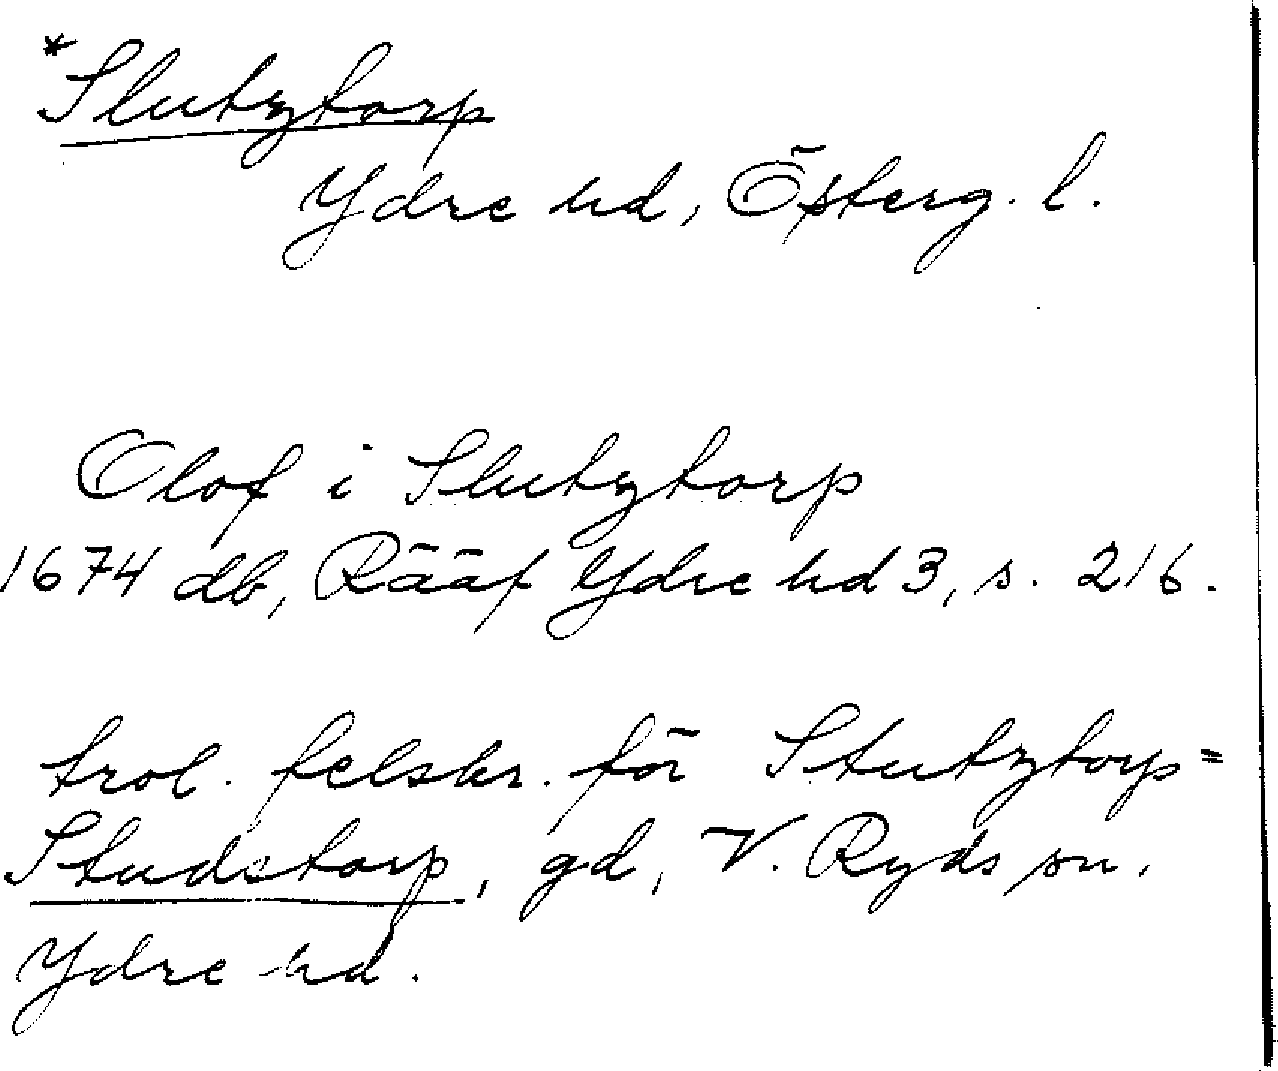 *Slutztorp
Ydre hd, Österg. l.
Olof i Slutztorp
1674 db, Rääf Ydre hd 3, s. 216.
trol. felskr. för Stutztorp =
Studstorp, gd, V. Ryds sn.
Ydre hd.